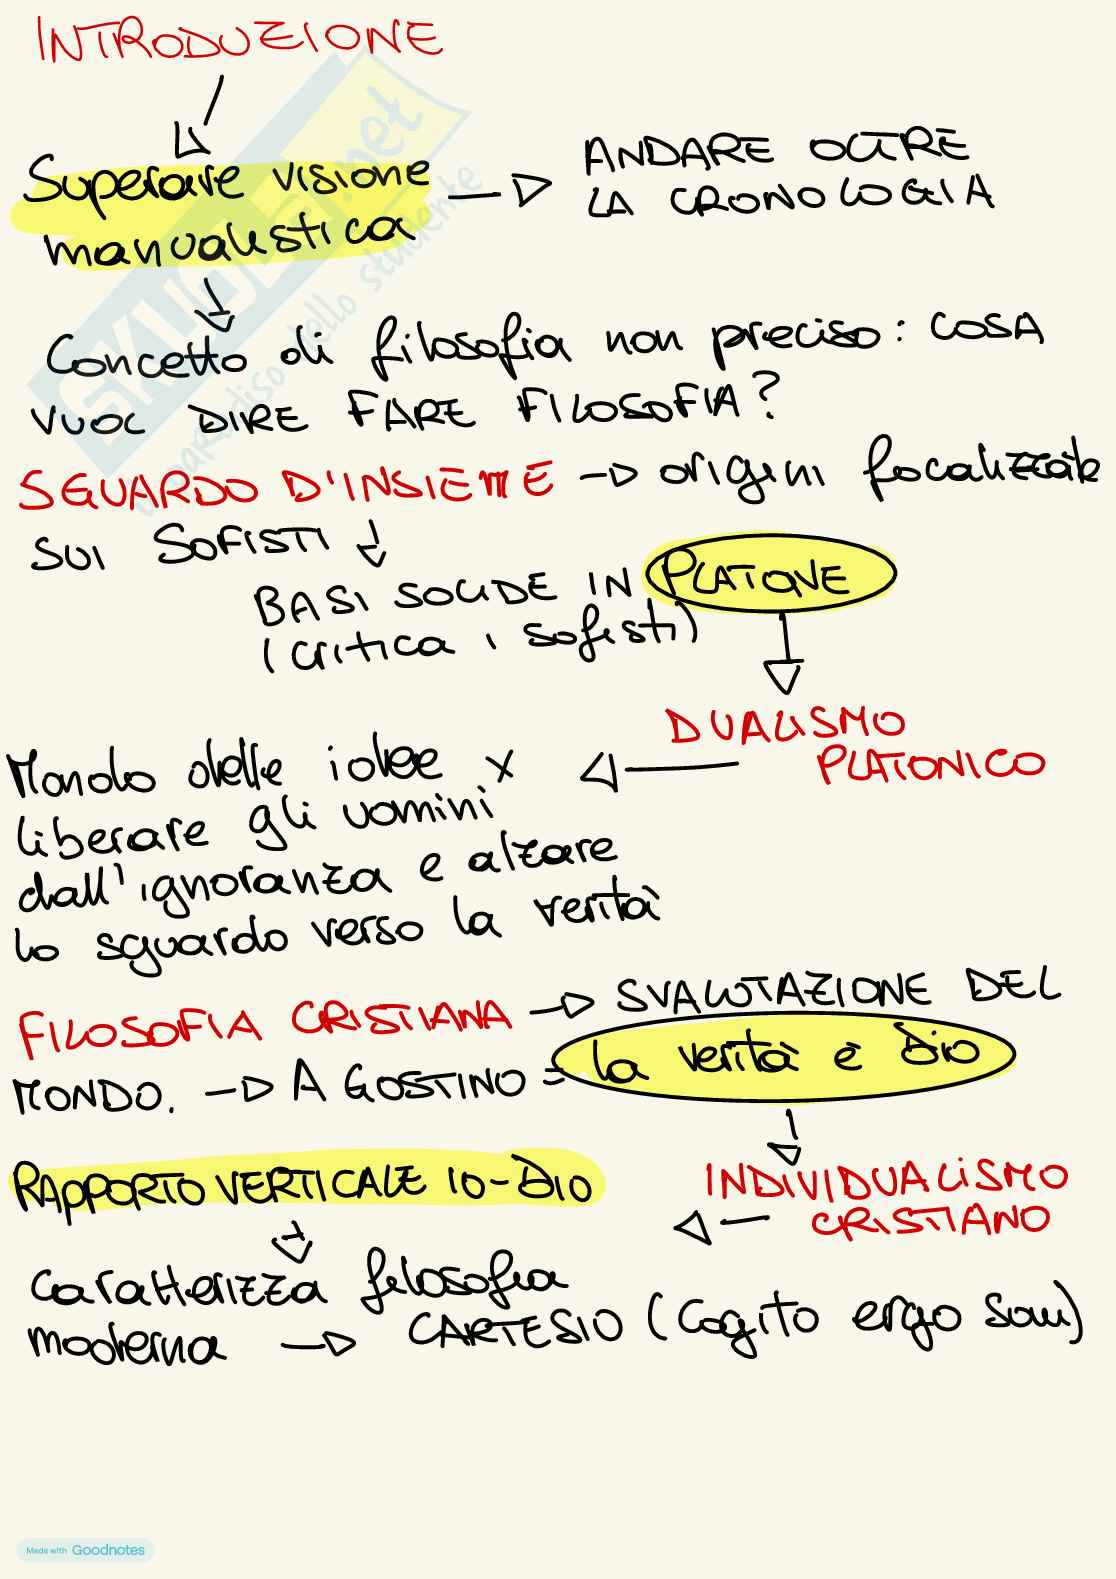 INTRODUZIONE
Superare visione → ANDARE OLTRE
manualistica LA CRONOLOGIA
Concetto di filosofia non preciso: COSA
VUOL DIRE FARE FILOSOFIA?
SGUARDO D'INSIEME → origini focalizzate
SUI SOFISTI
BASI SOLIDE IN PLATONE
(critica i sofisti)
DUALISMO
PLATONICO
Mondo delle idee x
liberare gli uomini
dall'ignoranza e alzare
lo sguardo verso la verità
FILOSOFIA CRISTIANA → SVALUTAZIONE DEL
MONDO. → AGOSTINO = la verità è Dio
RAPPORTO VERTICALE IO-DIO
INDIVIDUALISMO
CRISTIANO
Caratterizza filosofia
moderna → CARTESIO (Cogito ergo sum)
SKUOLA.net
il paradiso dello studente
Made with Goodnotes